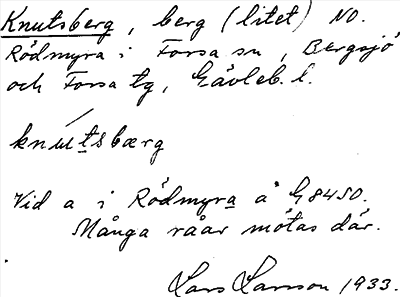 Knutsberg, berg (litet) NO.
Rödmyra i Forsa sn, Bergsjö
och Forsa tg, Gävleb. l.
knutsbærg
Vid a i Rödmyra å G8450.
Många råar mötas där.
Lars Larsson 1933.